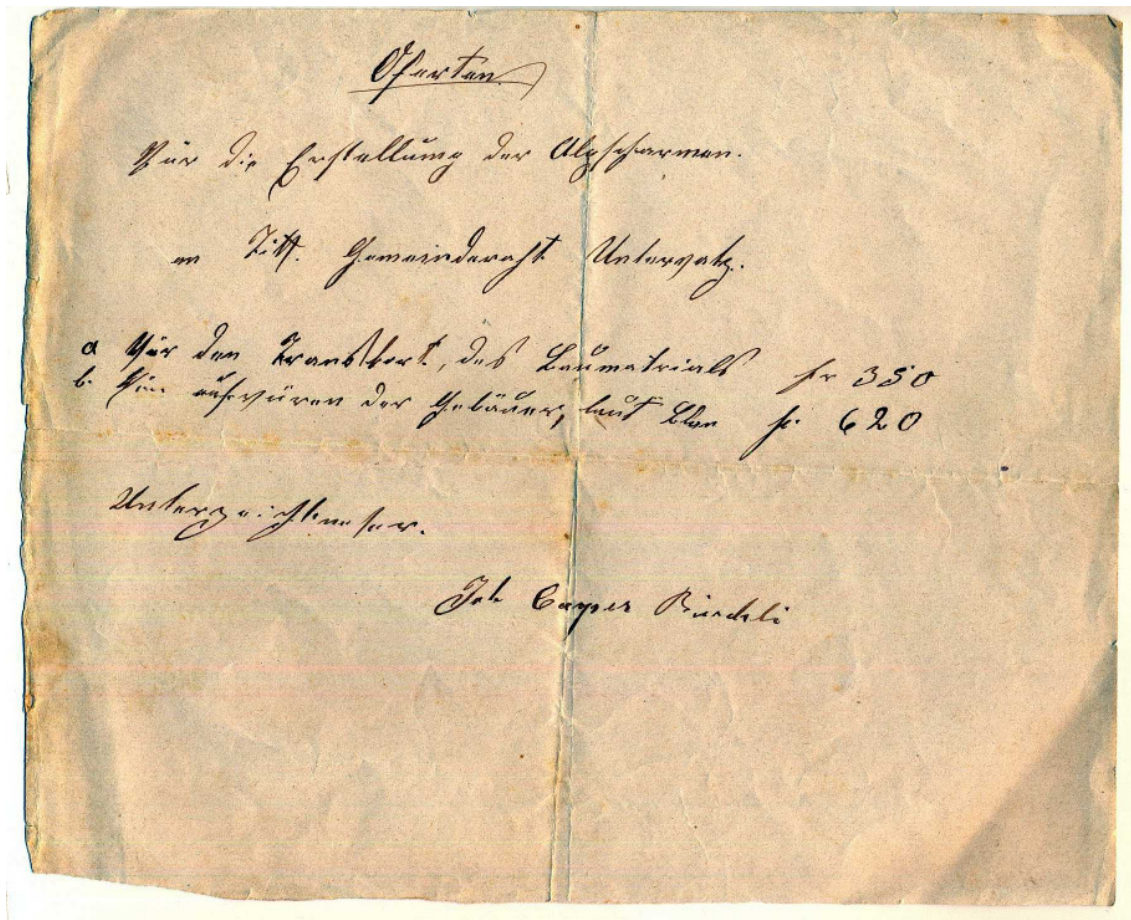 Oferten
Vür die Erstellung der Alpscharmen.
an Titt. Gemeinderaht Untervatz.
a Vür den Transbort, des Baumatrials fr 350
b. Vür aufvüren der Gebäuer, laut Blan fr. 620
Unterzeichneter.
Joh Casper